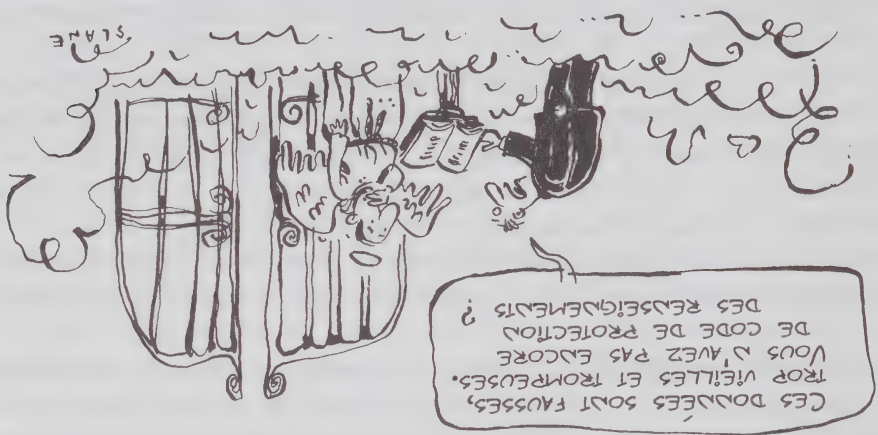 CES DONNÉES SONT FAUSSES,
TROP VIEILLES ET TROMPEUSES.
VOUS N'AVEZ PAS ENCORE
DE CODE DE PROTECTION
DES RENSEIGNEMENTS ?
SLANE